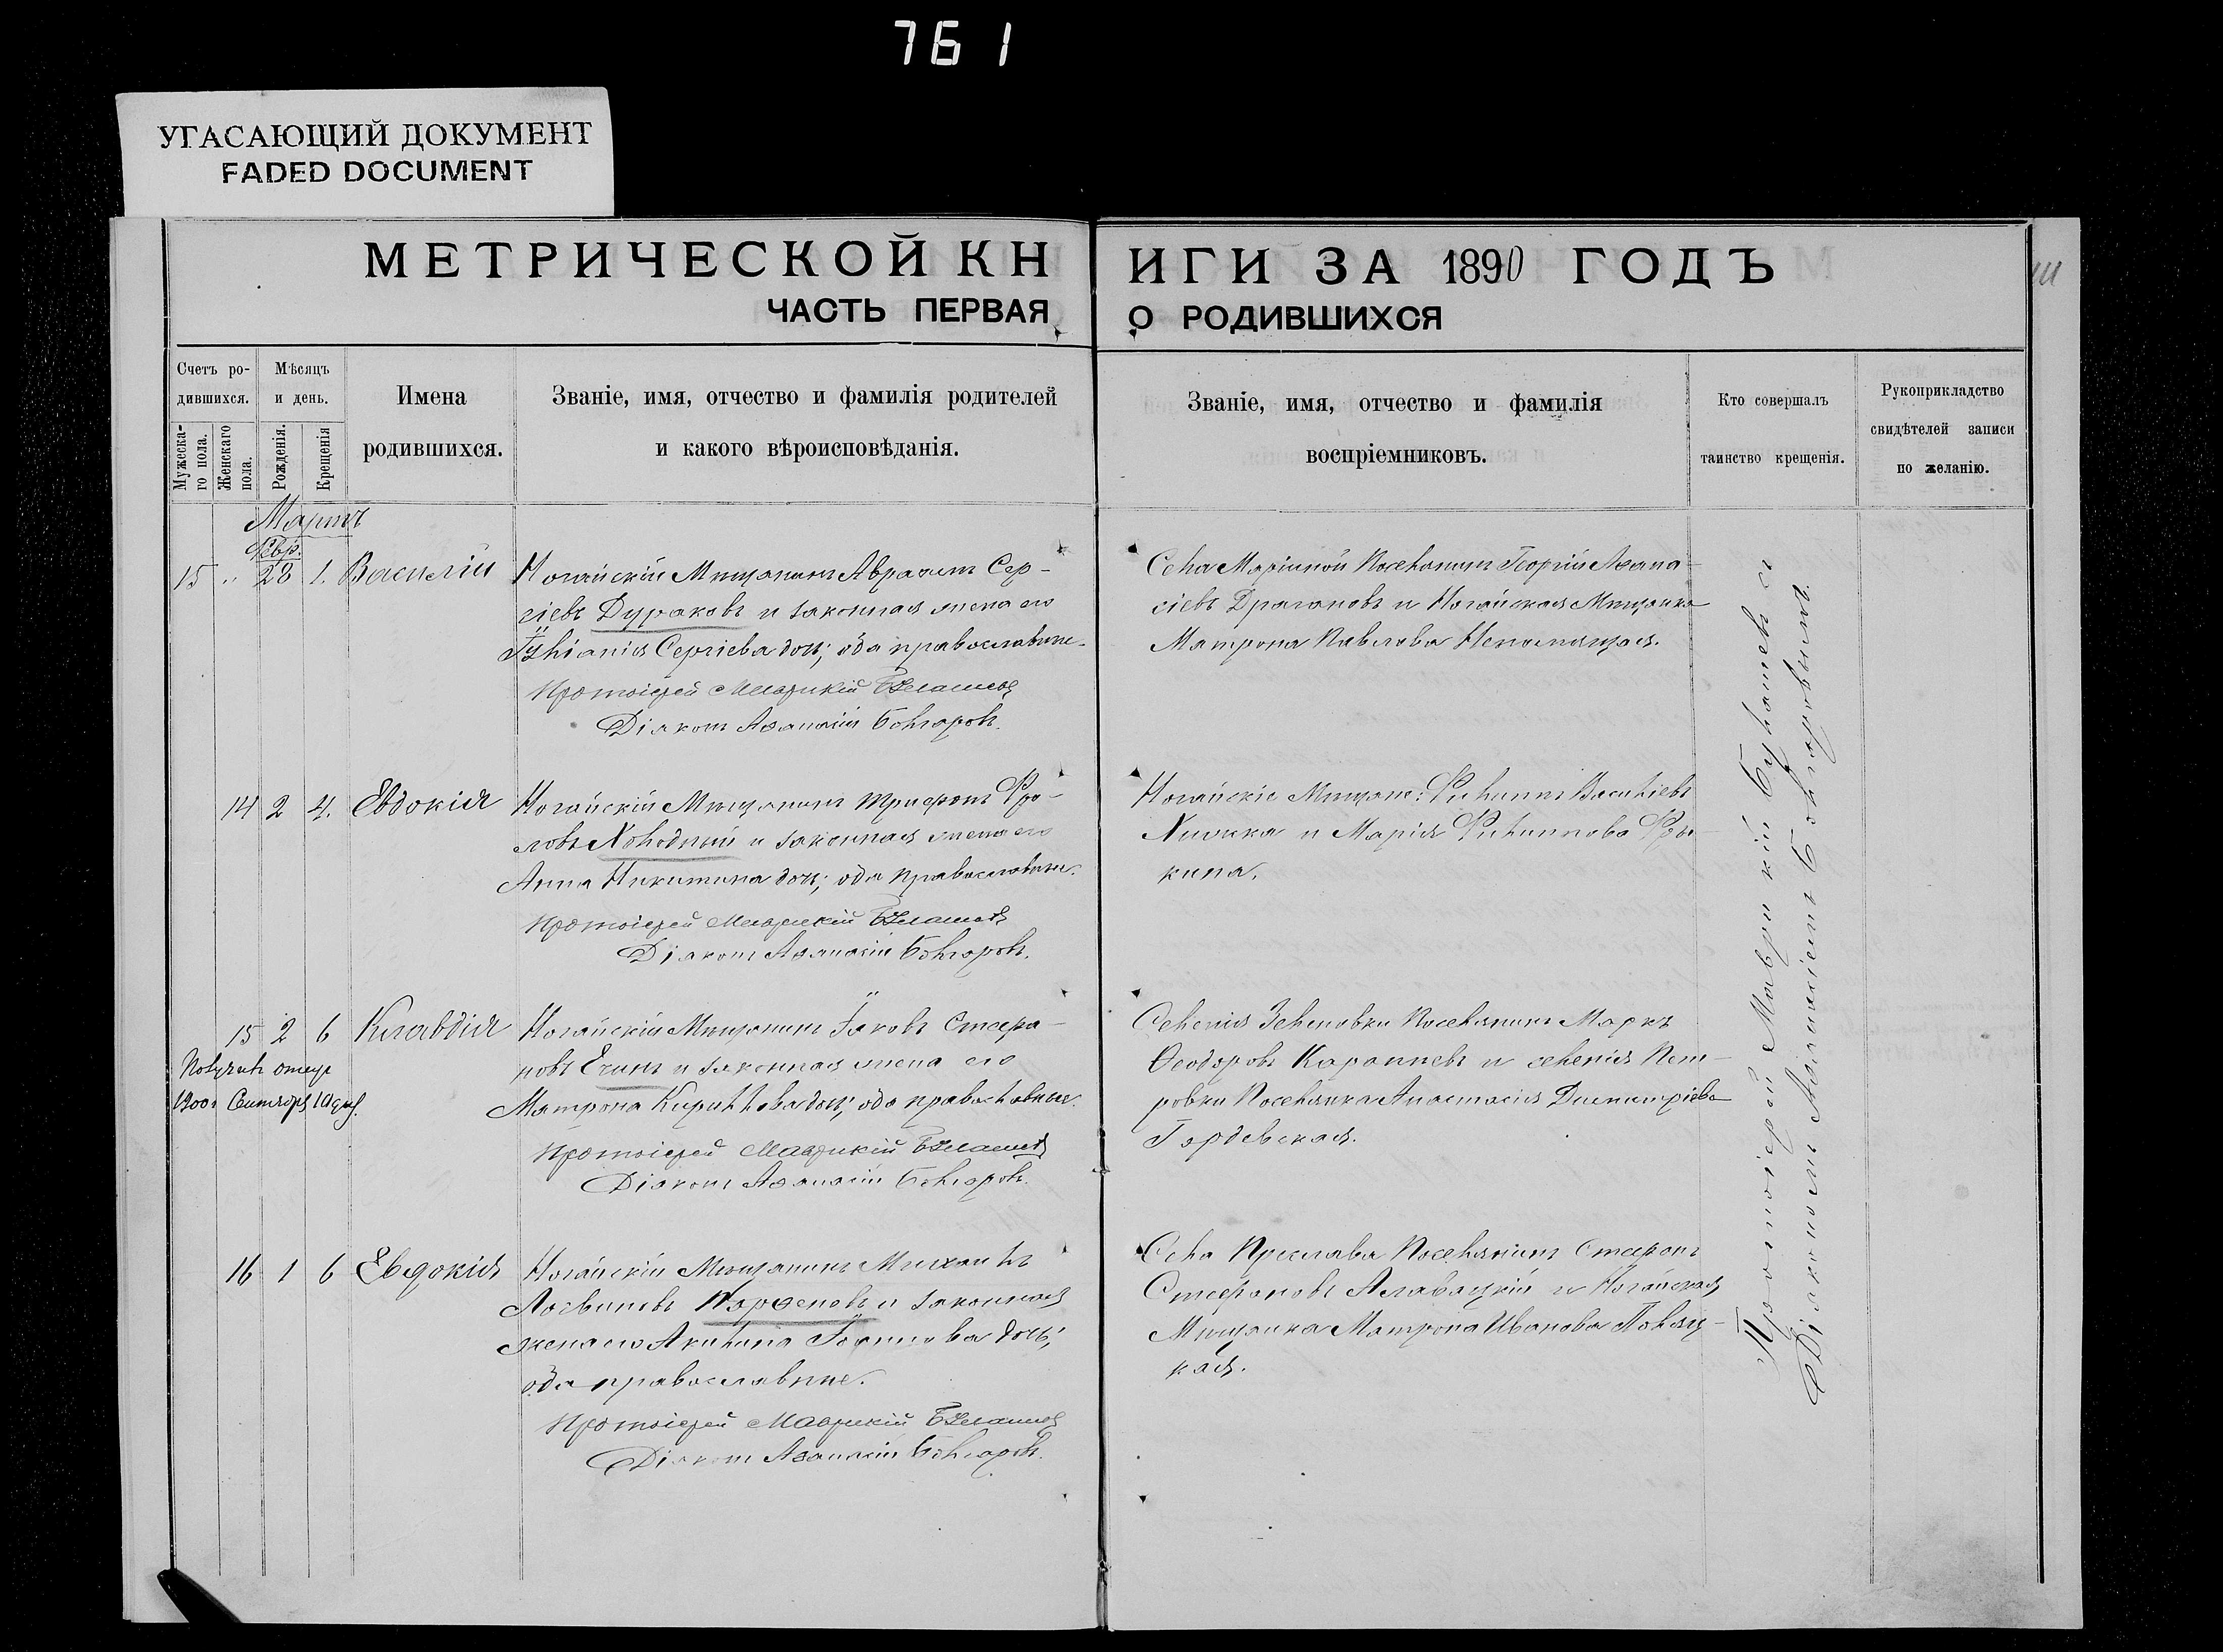 761
УГАСАЮЩИЙ ДОКУМЕНТ
FADED DOCUMENT
МЕТРИЧЕСКОЙ КНИГИ ЗА 1890 ГОДЪ
ЧАСТЬ ПЕРВАЯ О РОДИВШИХСЯ
Счетъ ро-
дившихся.
Мужеска-
го пола.
Женскаго
пола.
Мѣсяцъ
и день.
Рожденія.
Крещенія
Имена
родившихся.
Званіе, имя, отчество и фамилія родителей
и какого вѣроисповѣданія.
Званіе, имя, отчество и фамилія
воспріемниковъ.
Кто совершалъ
таинство крещенія.
Рукоприкладство
свидѣтелей записи
по желанію.
Мартъ
Февр.
15 " 28 1. Василій
Ногайскій Мѣщанинъ Авраамъ Сер-
гіевъ Дураковъ и законная жена его
Іуліанія Сергіева дочь; оба православные.
Протоіерей Маврикій
Діаконъ Аѳанасій Болгаровъ.
Села Маріиной Поселянинъ Георгій Аѳана-
сіевъ Драгановъ и Ногайская Мѣщанка
Матрона Павлова Непомнящая.
14 2 4. Евдокія
Ногайскій Мѣщанинъ Трифонъ Фро-
ловъ Холодный и законная жена его
Анна Никитина дочь; оба православные.
Протоіерей Маврикій
Діаконъ Аѳанасій Болгаровъ.
Ногайскіе Мѣщане: Филиппъ Васильевъ
и Марія Филиппова
кина.
15 2 6 Клавдія
1900
Ногайскій Мѣщанинъ Іаковъ Стефа-
новъ Ечинъ и законная жена его
Матрона Кириллова дочь; оба православные.
Протоіерей Маврикій
Діаконъ Аѳанасій Болгаровъ.
Селенія Зеленовки Поселянинъ Маркъ
Ѳеодоровъ Карапневъ и селенія Пет-
ровки Поселянка Анастасія Димитріева
16 1 6 Евдокія
Ногайскій Мѣщанинъ Михаилъ
Логвиновъ Парѳеновъ и законная
жена его Акилина Іоаннова дочь;
оба православные.
Протоіерей Маврикій
Діаконъ Аѳанасій Болгаровъ.
Села Преслава Поселянинъ Стефанъ
Стефановъ и Ногайская
Мѣщанка Матрона Иванова
кая.
Протоіерей Маврикій съ
Діакономъ Аѳанасіемъ Болгаровымъ.